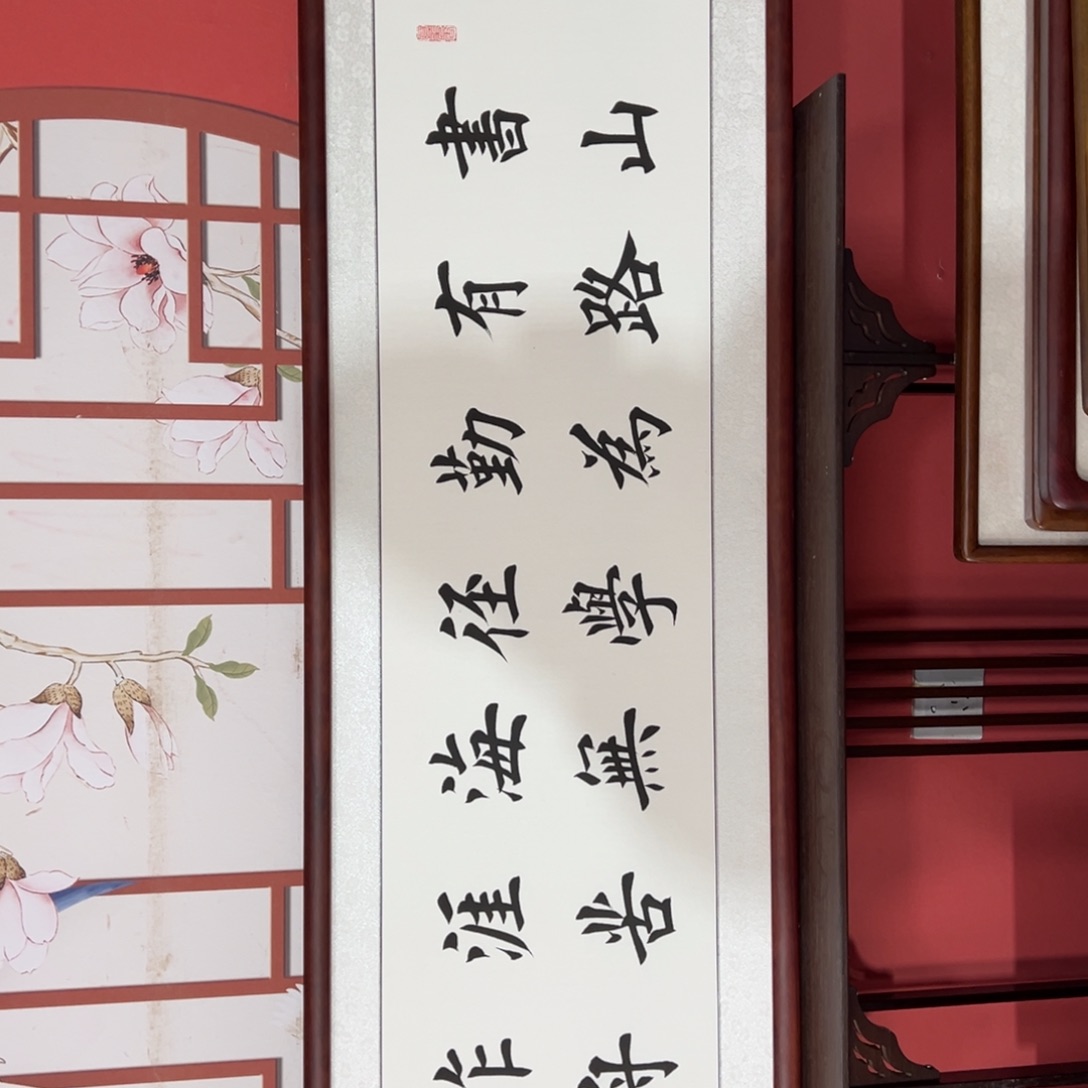 書山
有路
勤為
径學
海無
涯苦